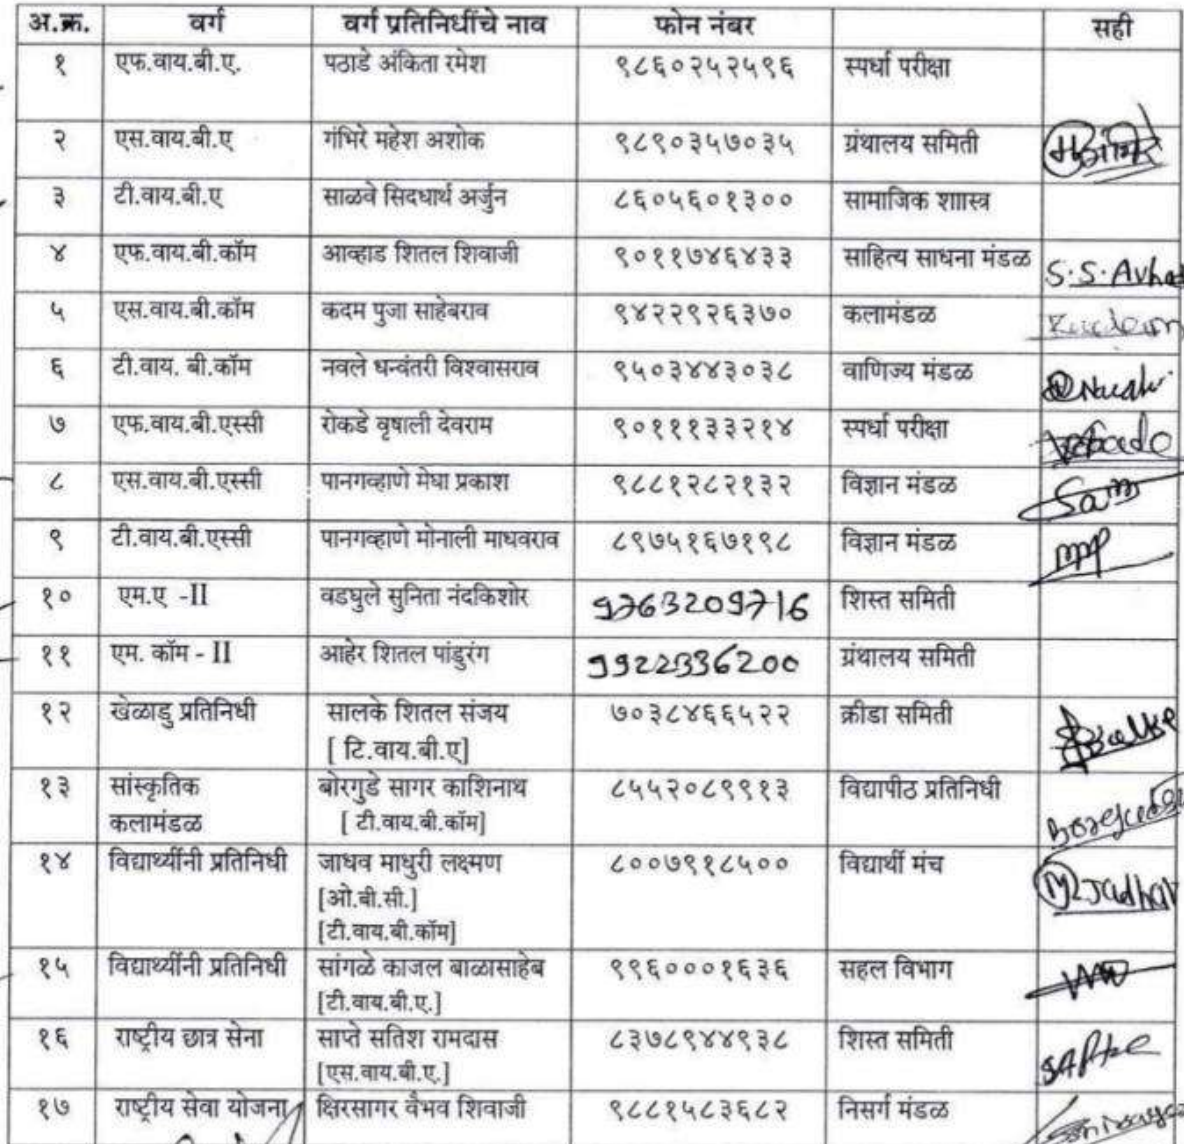 अ.क्र. वर्ग वर्ग प्रतिनिधींचे नाव फोन नंबर सही
१ एफ.वाय.बी.ए. पठाडे अंकिता रमेश ९८६०२५२५९६ स्पर्धा परीक्षा
२ एस.वाय.बी.ए गंभिरे महेश अशोक ९८९०३५७०३५ ग्रंथालय समिती
३ टी.वाय.बी.ए साळवे सिदधार्थ अर्जुन ८६०५६०१३०० सामाजिक शाास्त्र
४ एफ.वाय.बी.कॉम आव्हाड शितल शिवाजी ९०११७४६४३३ साहित्य साधना मंडळ S.S.Avhad
५ एस.वाय.बी.कॉम कदम पुजा साहेबराव ९४२२९२६३७० कलामंडळ
६ टी.वाय. बी.कॉम नवले धन्वंतरी विश्वासराव ९५०३४४३०३८ वाणिज्य मंडळ
७ एफ.वाय.बी.एस्सी रोकडे वृषाली देवराम ९०१११३३२१४ स्पर्धा परीक्षा
८ एस.वाय.बी.एस्सी पानगव्हाणे मेघा प्रकाश ९८८१२८२१३२ विज्ञान मंडळ
९ टी.वाय.बी.एस्सी पानगव्हाणे मोनाली माधवराव ८९७५१६७१९८ विज्ञान मंडळ
१० एम.ए -II वडघुले सुनिता नंदकिशोर 9763209716 शिस्त समिती
११ एम. कॉम - II आहेर शितल पांडुरंग 9922336200 ग्रंथालय समिती
१२ खेळाडु प्रतिनिधी सालके शितल संजय ७०३८४६६५२२ क्रीडा समिती
[ टि.वाय.बी.ए]
१३ सांस्कृतिक बोरगुडे सागर काशिनाथ ८५५२०८९९१३ विद्यापीठ प्रतिनिधी
कलामंडळ [ टी.वाय.बी.कॉम]
१४ विद्यार्थ्यीनी प्रतिनिधी जाधव माधुरी लक्ष्मण ८००७९१८५०० विद्यार्थी मंच
[ओ.बी.सी.] M.L.Jadhav
[टी.वाय.बी.कॉम]
१५ विद्यार्थ्यींनी प्रतिनिधी सांगळे काजल बाळासाहेब ९९६०००१६३६ सहल विभाग
[टी.वाय.बी.ए.]
१६ राष्ट्रीय छात्र सेना साप्ते सतिश रामदास ८३७८९४४९३८ शिस्त समिती
[एस.वाय.बी.ए.]
१७ राष्ट्रीय सेवा योजना क्षिरसागर वैभव शिवाजी ९८८१५८३६८२ निसर्ग मंडळ